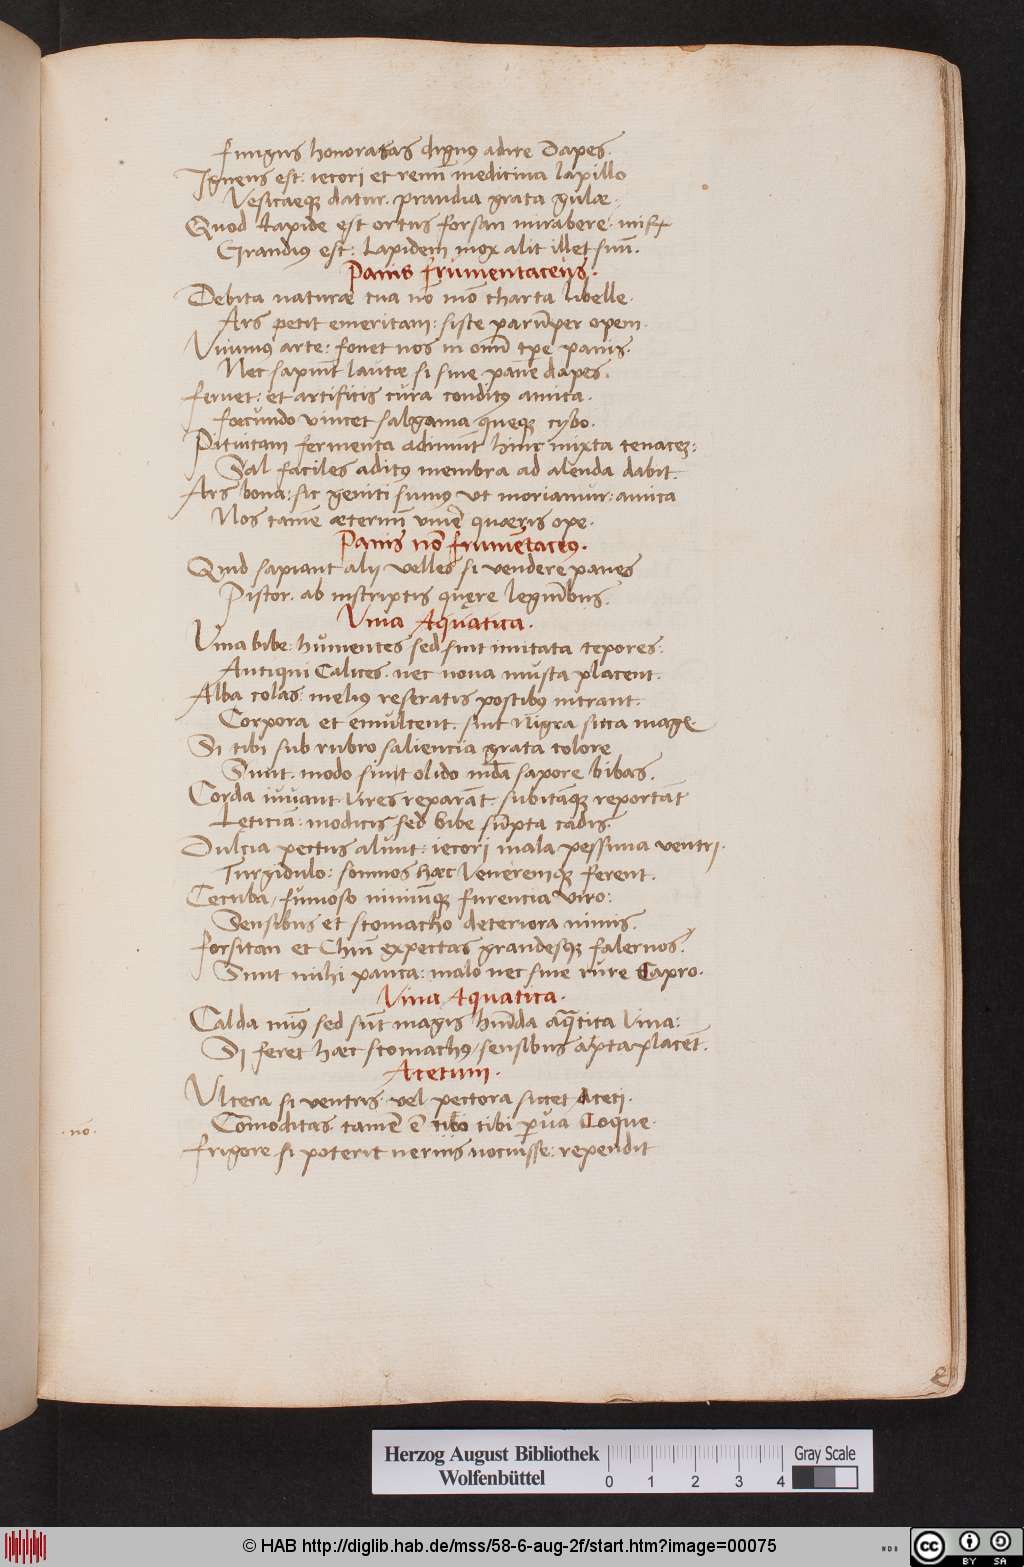 Fungus honoratas dignus adire Dapes.
Igneus est: iecori et renū medicina lapillo
Vesicaeqȝ datur. prandia grata gulæ:
Quod Lapide est ortus forsan mirabere:
Grandius est: Lapidem mox alit ille suū.
Panis frumentaceus.
Debita naturæ tua nō mō charta libelle.
Ars petit emeritam: siste parūper opem.
Viuimus arte: fouet nos in omī tpe panis.
Nec sapiūt lautæ si sine pane dapes.
Feruet: et artificis cura conditus amica.
Fœcundo vincet salgama queqȝ cybo.
Pituitam fermenta adimūt hinc mixta tenacez:
Sal faciles aditus membra ad alenda dabit.
Ars bona: sic geniti sumus vt moriamur: amica
Nos tamē æternū viuere quæris ope.
Panis nō frumētaceus.
Quid sapiant alij velles si vendere panes
Pistor. ab inscriptis quęre legumībus.
Vina Aquatica.
Vina bibe: humentes sed sint imitata tepores:
Antiqui Calices. nec noua musta placent.
Alba colas: melius reseratis postibus intrant.
Corpora et emulcent. sint Nigra sicca mage
Si tibi sub rubro saliencia grata colore
Sunt. modo sint olido nida sapore bibas.
Corda iuuant vires reparāt. subitāqȝ reportāt
Lęticiā: modicis sed bibe sūpta cadis.
Dulcia pectus alunt: iecori mala pessima ventri.
Turgidulo: somnos hæc Veneremqȝ ferent.
Cecuba, fumoso nimiūqȝ furencia viro:
Sensibus et stomacho deteriora nimis.
Forsitan et Chiū expectas grandesqȝ falernos.
Sunt mihi pauca: malo nec sine rure Capro.
Vina Aquatica.
Calda minus sed sūt magis humida aquatica vina:
Si feret hæc stomachus, sensibus apta placēt.
Acetum.
Vlcera si ventris vel pectora siccet Aceti.
Cōmoditas tamē ē cibo tibi parua Coque.
·no·
Frigore si poterit neruis nocuisse: rependit
Herzog August Bibliothek
Wolfenbüttel
0 1 2 3 4
Gray Scale
© HAB http://diglib.hab.de/mss/58-6-aug-2f/start.htm?image=00075
cc BY SA